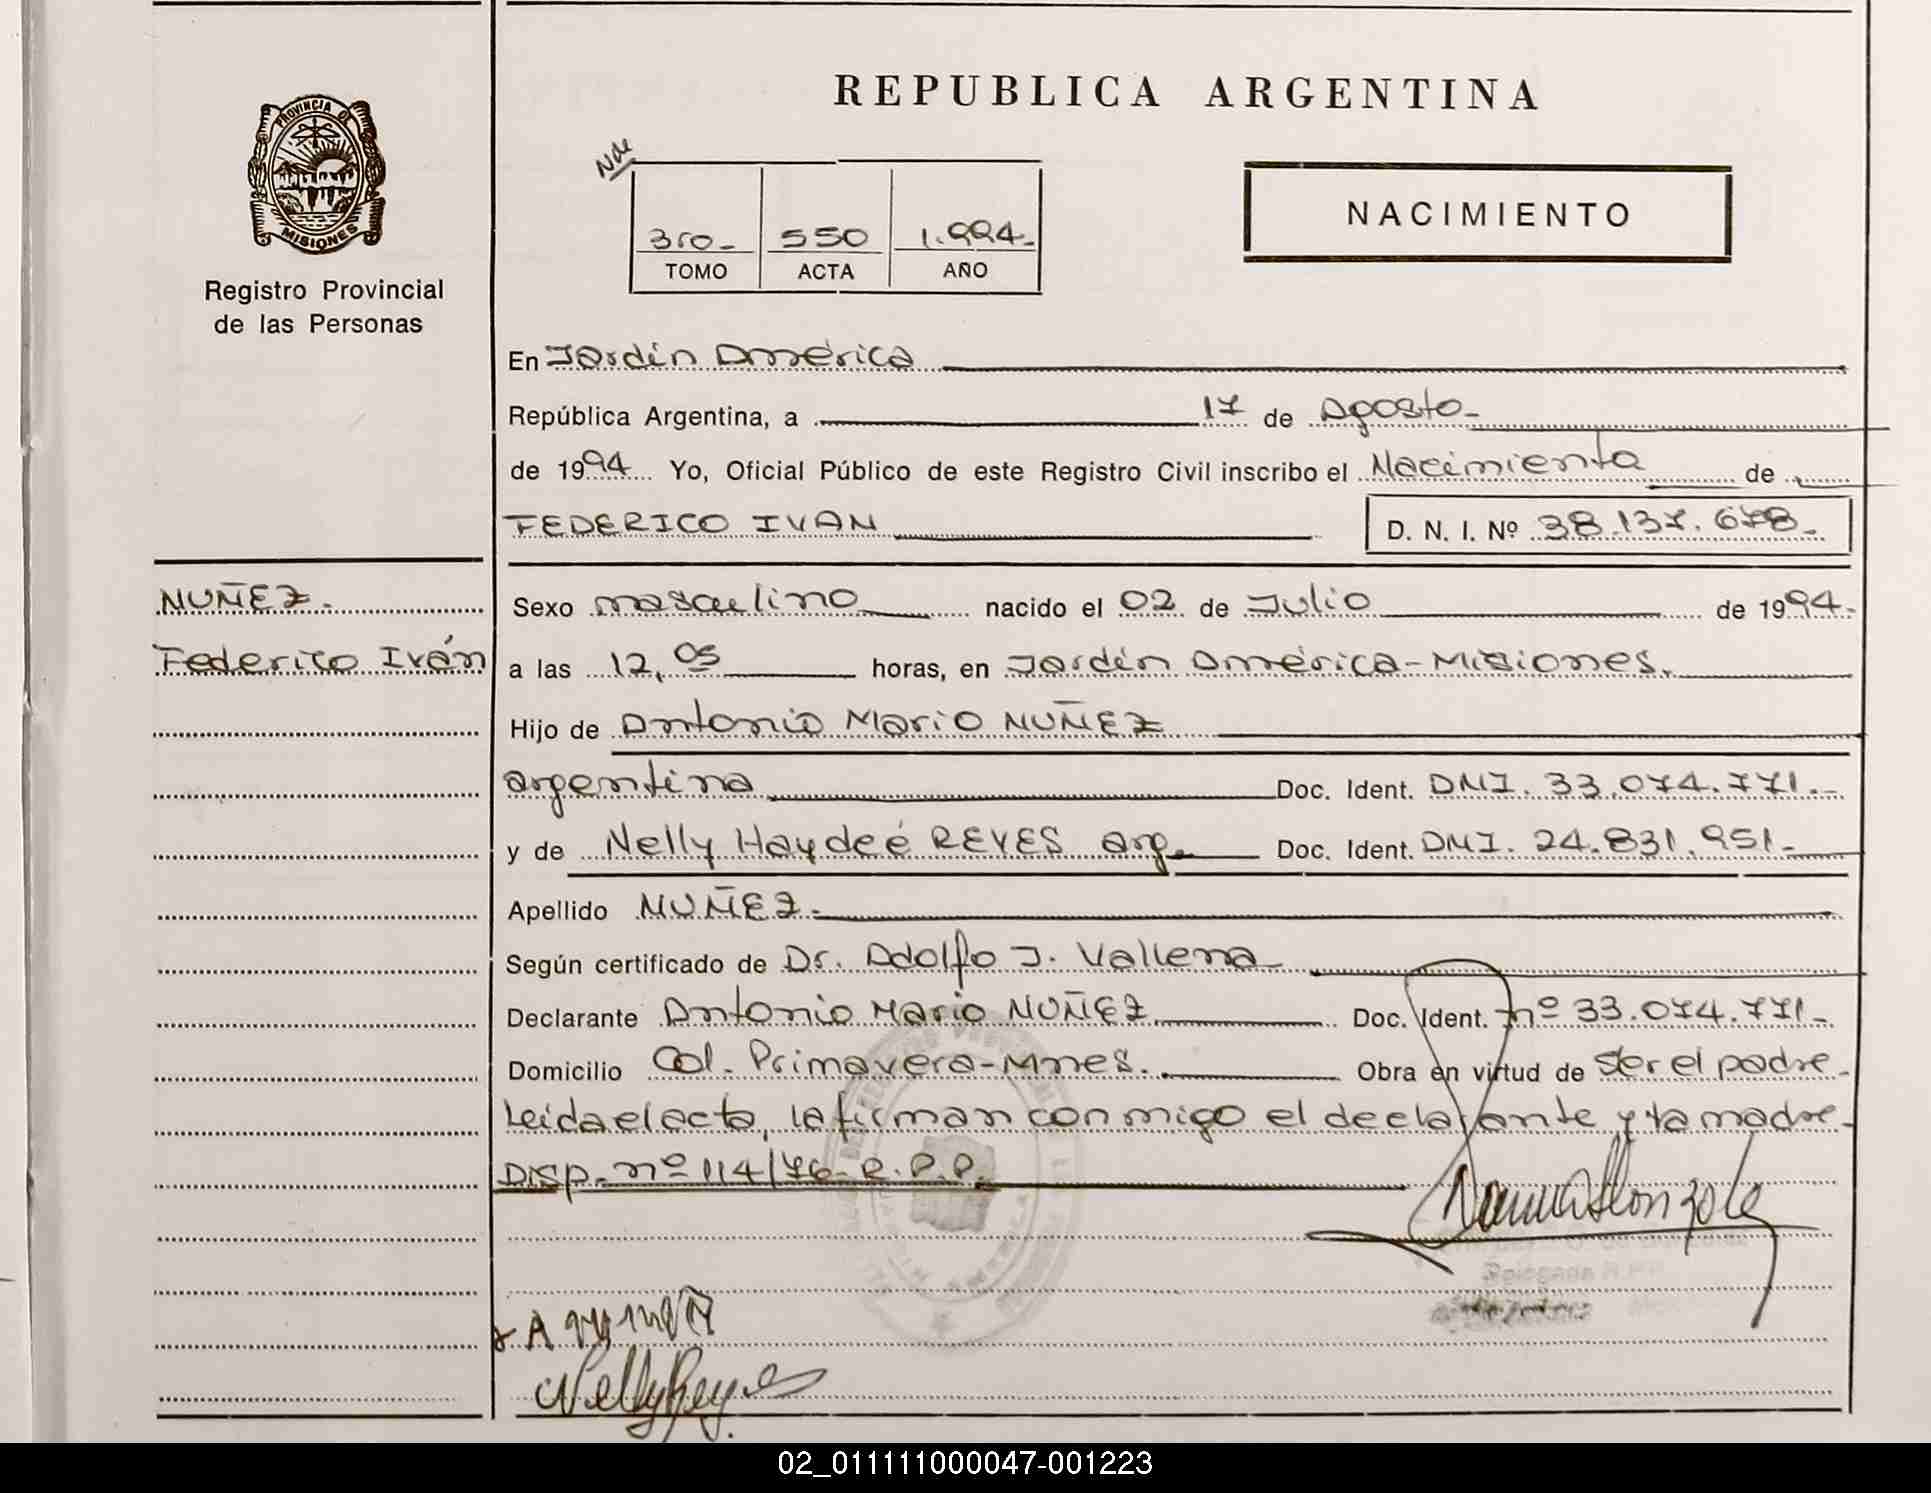 REPUBLICA ARGENTINA
PROVINCIA DE
MISIONES
Registro Provincial
de las Personas
Nde
3ro- 550 1.994-
TOMO ACTA AÑO
NACIMIENTO
En Jardín América
República Argentina, a 17 de Agosto-
de 1994 Yo, Oficial Público de este Registro Civil inscribo el Nacimiento de
FEDERICO IVAN D. N. I. Nº 38.137.678-
NUÑEZ-
Federico Iván
Sexo masculino nacido el 02 de Julio de 1994-
a las 12,05 horas, en Jardín América-Misiones.
Hijo de Antonio Mario NUÑEZ
argentina Doc. Ident. DNI. 33.074.771.-
y de Nelly Haydeé REYES arg. Doc. Ident. DNI. 24.831.951-
Apellido NUÑEZ-
Según certificado de Dr. Adolfo J. Vallena
Declarante Antonio Mario NUÑEZ Doc. Ident. nº 33.074.771-
Domicilio Col. Primavera-Mnes. Obra en virtud de ser el padre-
Leida el acta, la firman conmigo el declarante y la madre-
DISP. nº 114/76-R.P.P.
Nelly Reyes
02_011111000047-001223